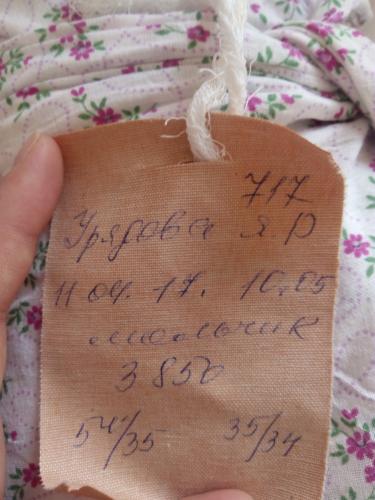 717
Урядова Я. Р
11 04. 17. 10.05
мальчик
3850
54/35 35/34